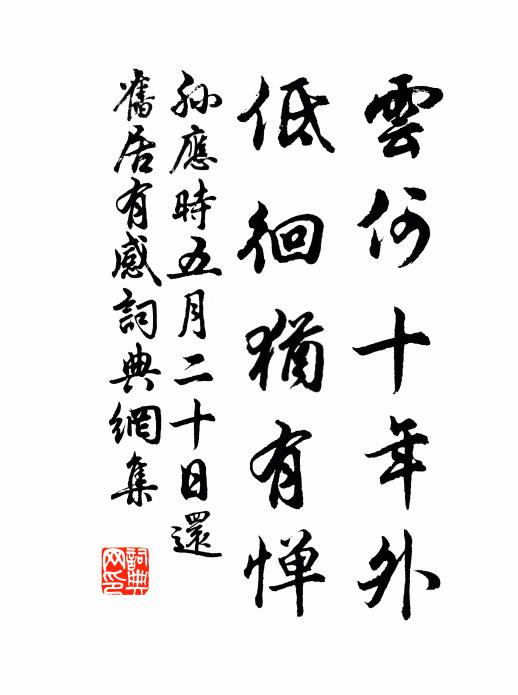 雲何十年外
低徊猶有惮
孫應時五月二十日還
舊居有感詞典網集
詞典
网印